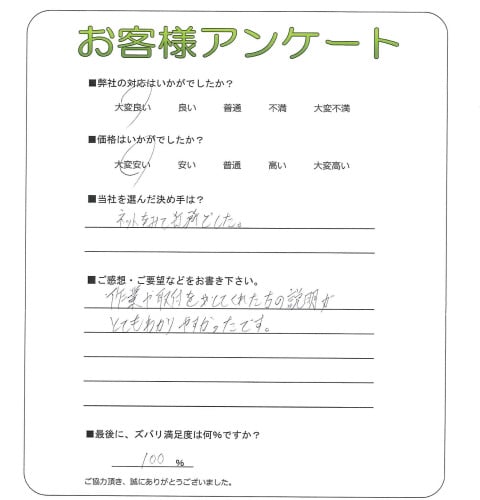 お客様アンケート
■弊社の対応はいかがでしたか？
大変良い 良い 普通 不満 大変不満
■価格はいかがでしたか？
大変安い 安い 普通 高い 大変高い
■当社を選んだ決め手は？
ネットをみて
でした。
■ご感想・ご要望などをお書き下さい。
作業や取付をしてくれた方の説明が
とてもわかりやすかったです。
■最後に、ズバリ満足度は何％ですか？
100 ％
ご協力頂き、誠にありがとうございました。